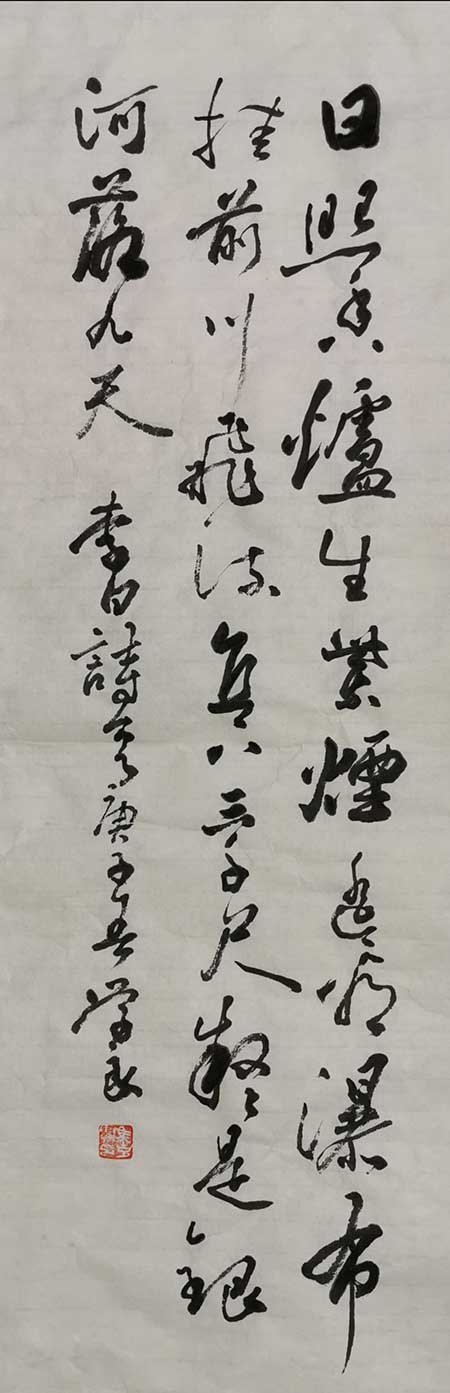 日照香爐生紫煙遙看瀑布
挂前川飛流直下三千尺疑是銀
河落九天 李白詩 庚子春學